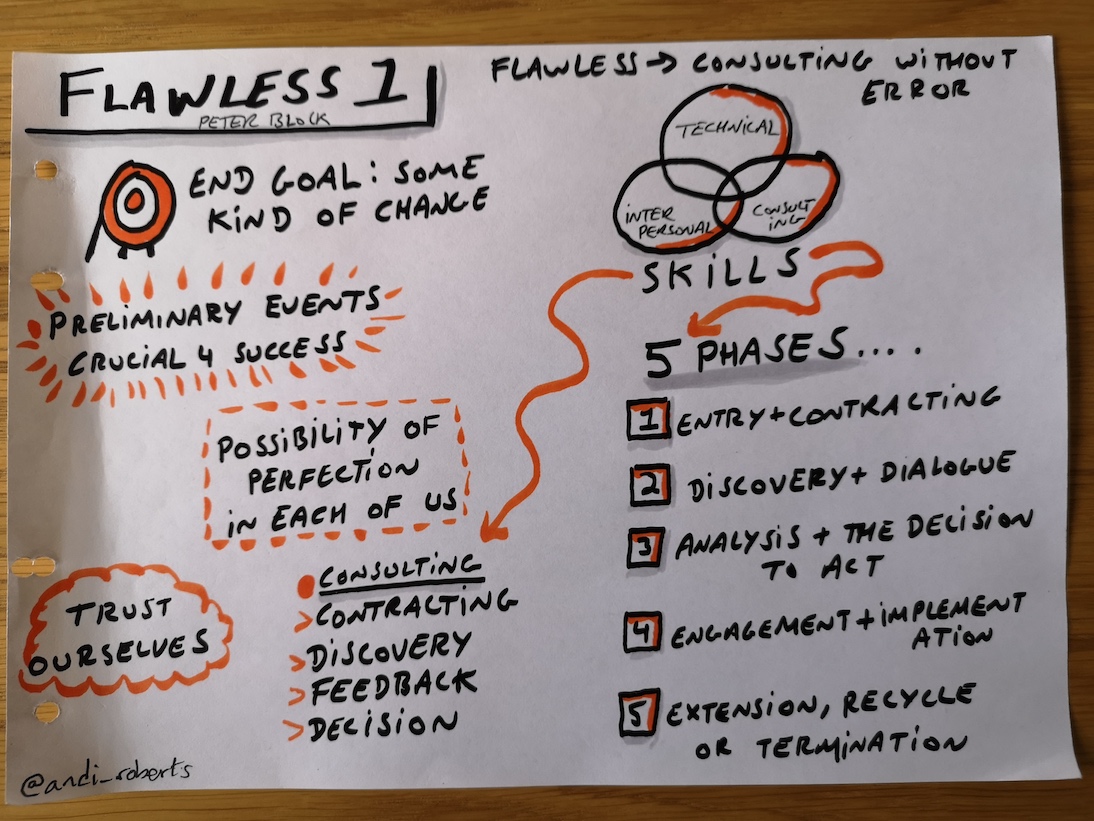 FLAWLESS 1
PETER BLOCK
FLAWLESS → CONSULTING WITHOUT
ERROR
END GOAL: SOME
KIND OF CHANGE
PRELIMINARY EVENTS
CRUCIAL 4 SUCCESS
POSSIBILITY OF
PERFECTION
IN EACH OF US
TRUST
OURSELVES
CONSULTING
> CONTRACTING
> DISCOVERY
> FEEDBACK
> DECISION
@andi_roberts
TECHNICAL
INTER
PERSONAL
CONSULT
ING
SKILLS
5 PHASES....
1 ENTRY + CONTRACTING
2 DISCOVERY + DIALOGUE
3 ANALYSIS + THE DECISION
TO ACT
4 ENGAGEMENT + IMPLEMENT
ATION
5 EXTENSION, RECYCLE
OR TERMINATION